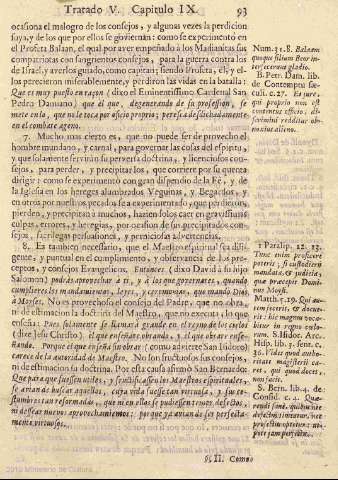 Tratado V. Capitulo IX. 93
ocasiona el malogro de los consejos, y algunas vezes la perdicion
suya, y de los que por ellos se goviernan: como se experimentò en
el Profeta Balaan, el qual por aver empeñado à los Madianitas sus
compatriotas con sangrientos consejos, para la guerra contra los
de Israel, y averlos guiado, como capitan; siendo Profeta, èl, y e-
llos perecieron miserablemente, y perdieron las vidas en la batalla:
Que es muy puesto en razon (dixo el Eminentissimo Cardenal San
Pedro Damiano) que el que, degenerando de su profession, se
mete en lo, que no le toca por oficio proprio; perezca desdichadamente
en el combate ageno.
7. Mucho mas cierto es, que no puede ser de provecho el
hombre mundano, y carnal, para governar las cosas del espiritu,
y que solamente serviràn su perversa doctrina, y licenciosos con-
sejos, para perder, y precipitar los, que corriere por su quenta
dirigir: como se experimentò con gran dispendio de la Fè, y de
la Iglesia en los hereges alumbrados Veguinas, y Begardos, y
en otros por nuestros pecados se à experimentado, que perdieron,
pierden, y precipitan à muchos, haziendolos caer en gravissimas
culpas, errores, y heregias, por ocasion de sus precipitados con-
sejos, sacrilegas persuasiones, y perniciosas advertencias.
8. Es tambien necessario, que el Maestro espiritual sea dili-
gente, y puntual en el cumplimiento, y observancia de los pre-
ceptos, y consejos Evangelicos. Entonces (dixo David à su hijo
Salomon) podràs aprovechar à ti, y à los que governares, quando
cumplieres los mandamientos, leyes, y ceremonias, que mandò Dios
à Moyses. No es provechoso el consejo del Padre, que no obra,
ni de estimacion la doctrina del Maestro, que no executa, lo que
enseña: Pues solamente se llamarà grande en el reyno de los cielos
(dize Jesu Christo) el que enseñare obrando, y el que obrare ense-
ñando. Porque el que enseña sin obrar (como advierte San Isidoro)
carece de la autoridad de Maestro. No son fructuosos sus consejos,
ni de estimacion su doctrina. Por esta causa afirmò San Bernardo:
Que para que fuessen utiles, y fructificassen los Maestros espirituales,
se avian de buscar aquellos, cuya vida fuesse tan virtuosa, y sus co-
stumbres tan reformadas, que ni en ellas se pudiessen temer defectos,
ni desear nuevos aprovechamientos: porque ya avian de ser perfecta-
mente virtuosos.
§. II. Como
Num. 31. 8. Balaam
quoque filium Beor in-
terfecerunt gladio.
B. Petr. Dam. lib.
de Contemptu sæ-
culi. c. 27. Et jure,
qui proprio non est
contentus officio; di-
scrimini redditur ob-
noxius alieno.
1 Paralip. 22. 13.
Tunc enim proficere
poteris; si custodieris
mandata, & judicia,
quæ præcepit Domi-
nus Moysi.
Matth. 5. 19. Qui au-
tem fecerit, & docue-
rit: hic magnus voca-
bitur in regno cælo-
rum. S. Isidor. Arc.
Hisp. lib. 3. sent. c.
36. Vides quod autho-
ritate magisterij ca-
ret, qui quod docet,
non facit.
S. Bern. lib. 4. de
Consid. c. 4. Quæ-
rendi sunt, quibus nec
defectum timeatur, nec
profectum optetur: ut-
pote jam perfectum.
2010 Ministerio de Cultura